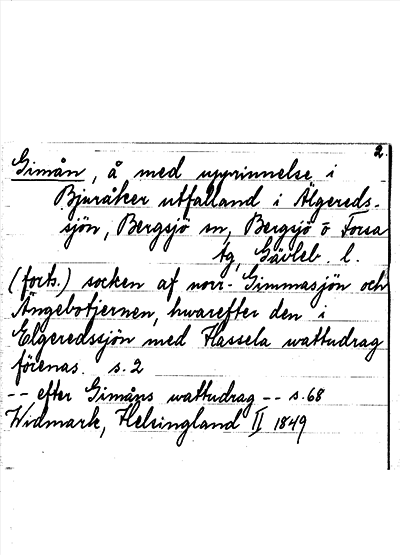 2.
Gimån, å med upprinnelse i
Bjuråker utfalland i Älgereds-
sjön, Bergsjö sn, Bergsjö o Forsa
tg, Gävleb. l.
(forts.) socken af norr- Gimmasjön och
Ängebotjernen, hwarefter den i
Elgeredssjön med Hassela wattudrag
förenas. s. 2
-- efter Gimåns wattudrag -- s. 68
Widmark, Helsingland II 1849